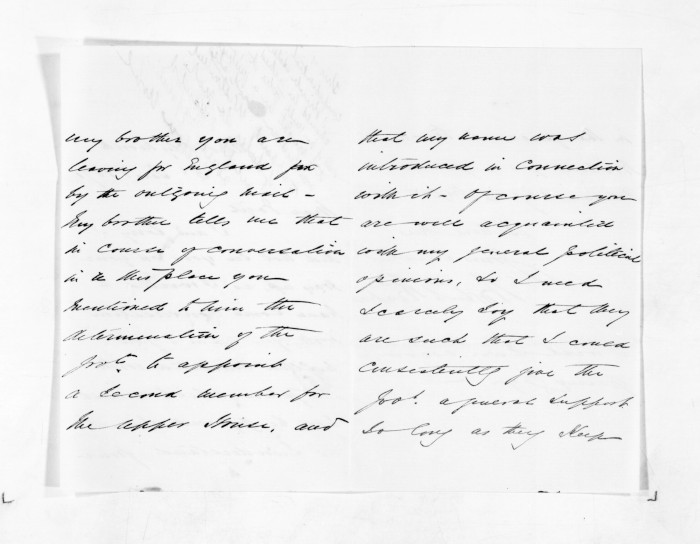 my brother you are
leaving for England
by the outgoing mail -
My brother tells me that
in course of conversation
in this place you
mentioned to him the
determination of the
Govt. to appoint
a second member for
the upper House, and
that my name was
introduced in connection
with it - Of course you
are well acquainted
with my general political
opinions, so I need
scarcely say that they
are such that I could
consistently give the
Govt. a general support
so long as they keep